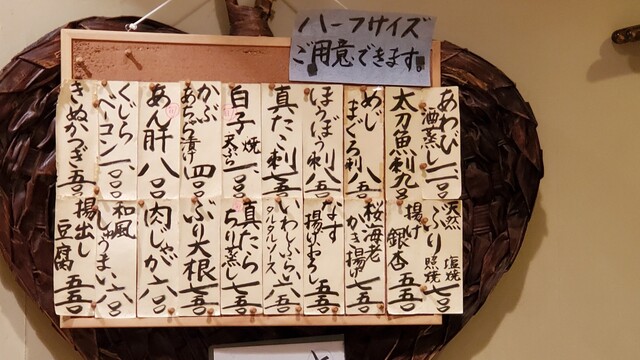 ハーフサイズ
ご用意できます。
あわび酒蒸し 一、〇〇
太刀魚刺 九〇〇
めじまぐろ刺 八五〇
ほうぼう刺 八五〇
真たこ刺 七五〇
白子 焼 天ぷら 一、〇〇
かぶあちゃら漬け 四〇〇
あん肝 八〇〇
くじらベーコン 一、〇〇〇
きぬかつぎ 五〇〇
天然ぶり 塩焼 照焼 七〇〇
揚げ銀杏 五五〇
桜海老かき揚げ 七五〇
なす揚げおろし 五五〇
いわしふらい 六五〇
タルタルソース
真たらちり蒸し 七五〇
ぶり大根 七五〇
肉じゃが 六〇〇
和風しゅうまい 六〇〇
揚出し豆腐 五五〇